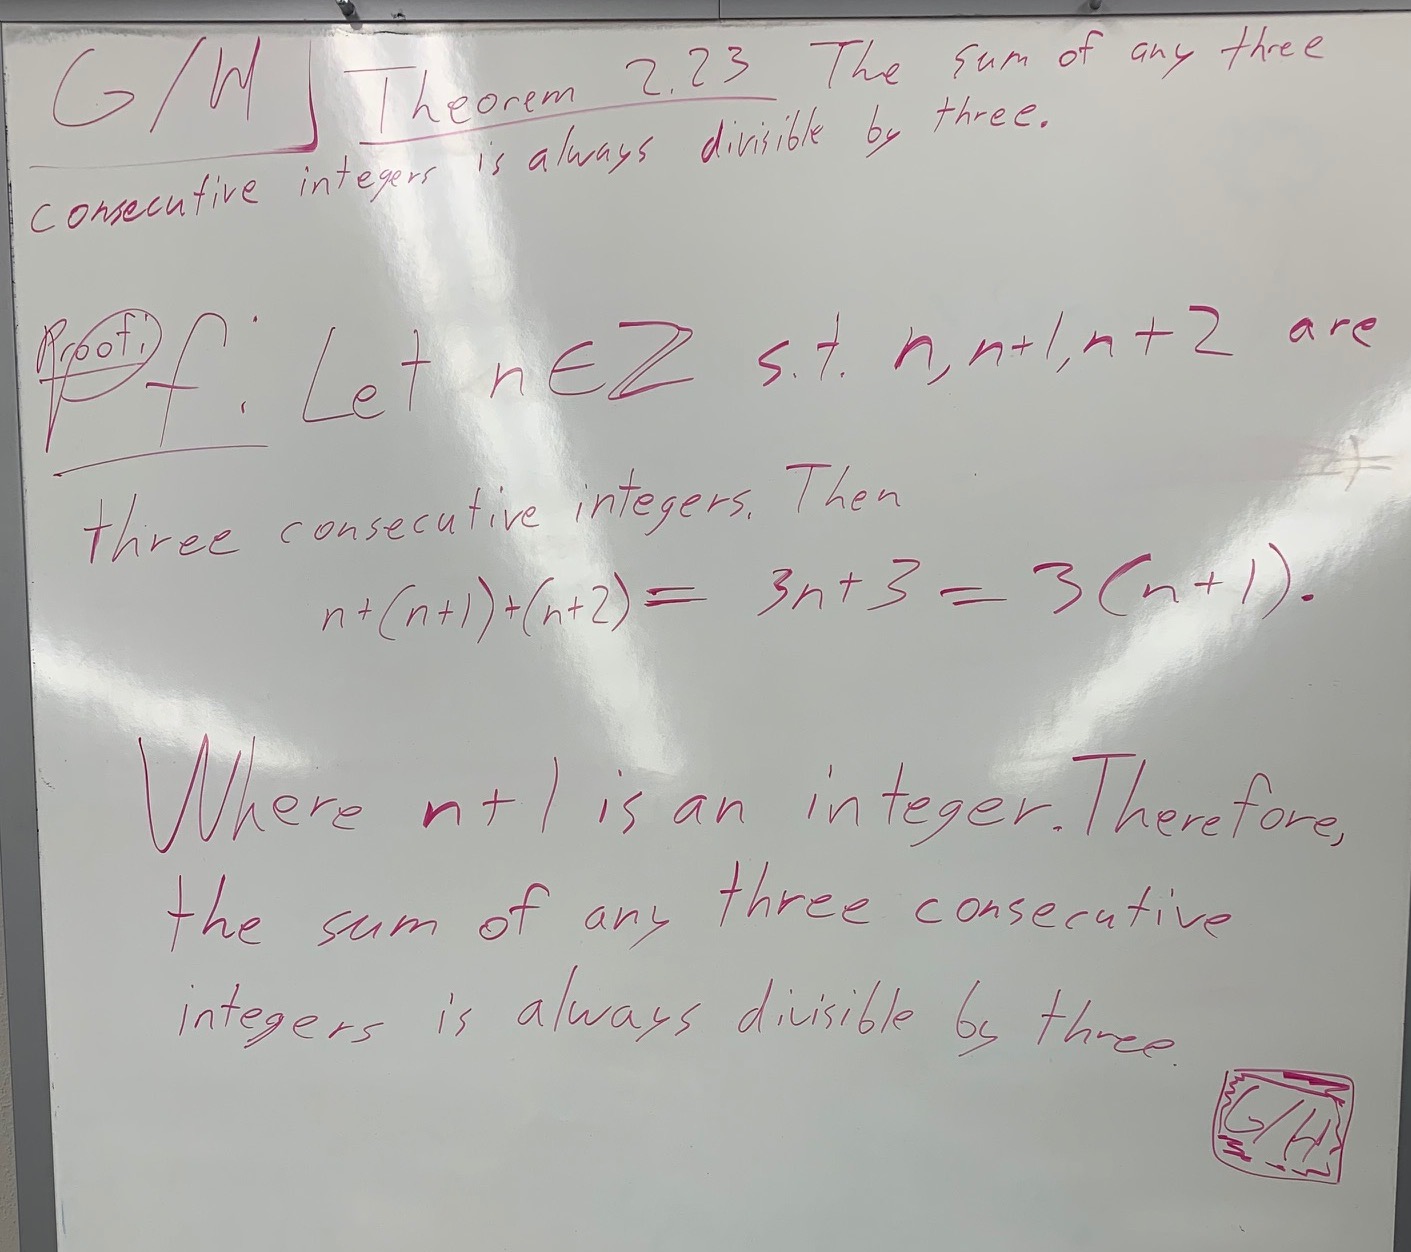 G/H Theorem 2.23 The sum of any three
consecutive integers is always divisible by three.
Proof:
Pf: Let n∈ℤ s.t. n, n+1, n+2 are
three consecutive integers. Then
n+(n+1)+(n+2) = 3n+3 = 3(n+1).
Where n+1 is an integer. Therefore,
the sum of any three consecutive
integers is always divisible by three.
G/H